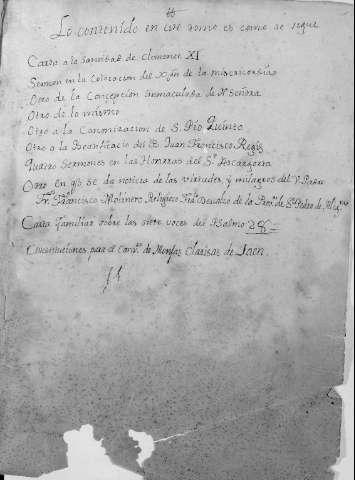 Lo contenido en este tomo es como se sigue
Carta a la Santidad de Clemente XI
Sermon en la Colocacion del Xpto de la misericordia
Otro de la Concepcion Inmaculada de Nª Señora
Otro de lo mismo
Otro a la Canonizacion de S. Pio Quinto
Otro a la Beatificacio del B. Juan Francisco Regis
Quatro Sermones en las Honrras del Sr Ascargorta
Otro en q̃ se da noticia de las virtudes, y milagros del V. Padre
Fr. Francisco Molinero Religioso Descalzo de la Prova de Sn Pedro de
Carta familiar sobre las siete voces del Psalmo 28
Constituciones para el Convto de Monjas Clarisas de Jaen.